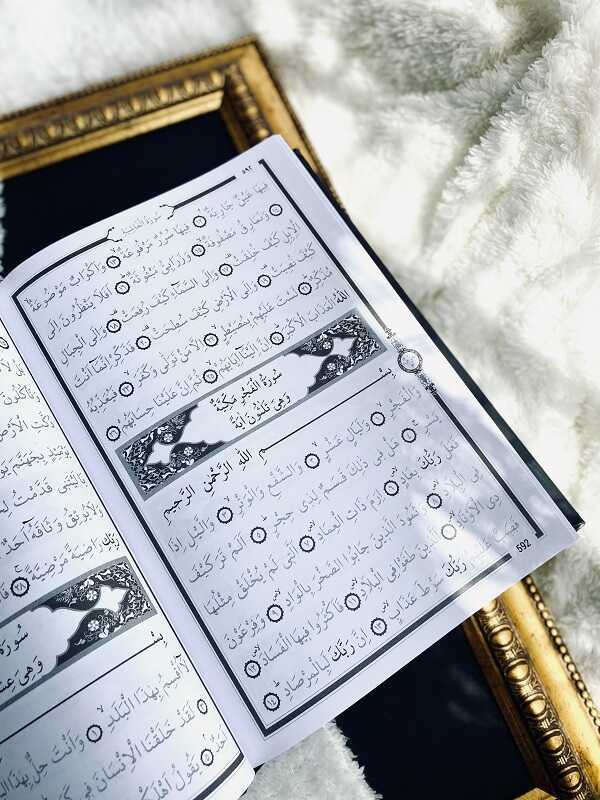 ٥٩٢
سُورَةُ الْغَاشِيَةِ
فِيهَا عَيْنٌ جَارِيَةٌ ۝١٢ فِيهَا سُرُرٌ مَرْفُوعَةٌ ۝١٣ وَاَكْوَابٌ مَوْضُوعَةٌ ۝١٤
وَنَمَارِقُ مَصْفُوفَةٌ ۝١٥ وَزَرَابِيُّ مَبْثُوثَةٌ ۝١٦ اَفَلَا يَنْظُرُونَ اِلَى
الْاِبِلِ كَيْفَ خُلِقَتْ ۝١٧ وَاِلَى السَّمَاءِ كَيْفَ رُفِعَتْ ۝١٨ وَاِلَى الْجِبَالِ
كَيْفَ نُصِبَتْ ۝١٩ وَاِلَى الْاَرْضِ كَيْفَ سُطِحَتْ ۝٢٠ فَذَكِّرْ اِنَّمَا اَنْتَ
مُذَكِّرٌ ۝٢١ لَسْتَ عَلَيْهِمْ بِمُصَيْطِرٍ ۝٢٢ اِلَّا مَنْ تَوَلّٰى وَكَفَرَ ۝٢٣ فَيُعَذِّبُهُ
اللّٰهُ الْعَذَابَ الْاَكْبَرَ ۝٢٤ اِنَّ اِلَيْنَا اِيَابَهُمْ ۝٢٥ ثُمَّ اِنَّ عَلَيْنَا حِسَابَهُمْ ۝٢٦
سُورَةُ الْفَجْرِ مَكِّيَّةٌ
وَهِيَ ثَلٰثُونَ اٰيَةً
بِسْمِ اللّٰهِ الرَّحْمٰنِ الرَّحِيمِ
وَالْفَجْرِ ۝١ وَلَيَالٍ عَشْرٍ ۝٢ وَالشَّفْعِ وَالْوَتْرِ ۝٣ وَالَّيْلِ اِذَا
يَسْرِ ۝٤ هَلْ فِي ذٰلِكَ قَسَمٌ لِذِي حِجْرٍ ۝٥ اَلَمْ تَرَ كَيْفَ
فَعَلَ رَبُّكَ بِعَادٍ ۝٦ اِرَمَ ذَاتِ الْعِمَادِ ۝٧ اَلَّتِي لَمْ يُخْلَقْ مِثْلُهَا
فِي الْبِلَادِ ۝٨ وَثَمُودَ الَّذِينَ جَابُوا الصَّخْرَ بِالْوَادِ ۝٩ وَفِرْعَوْنَ
ذِي الْاَوْتَادِ ۝١٠ اَلَّذِينَ طَغَوْا فِي الْبِلَادِ ۝١١ فَاَكْثَرُوا فِيهَا الْفَسَادَ ۝١٢
فَصَبَّ عَلَيْهِمْ رَبُّكَ سَوْطَ عَذَابٍ ۝١٣ اِنَّ رَبَّكَ لَبِالْمِرْصَادِ ۝١٤
592
وَتَأْكُلُونَ
دُكَّتِ الْاَرْضُ
يَوْمَئِذٍ بِجَهَنَّمَ
يَا لَيْتَنِي قَدَّمْتُ
وَلَا يُوثِقُ وَثَاقَهُ اَحَدٌ
رَبِّكِ رَاضِيَةً مَرْضِيَّةً ۝٢٨
سُورَةُ
وَهِيَ
لَا اُقْسِمُ بِهٰذَا الْبَلَدِ ۝١ وَاَنْتَ حِلٌّ بِهٰذَا
لَقَدْ خَلَقْنَا الْاِنْسَانَ فِي
اَحَدٌ ۝٥ يَقُولُ اَهْلَكْتُ